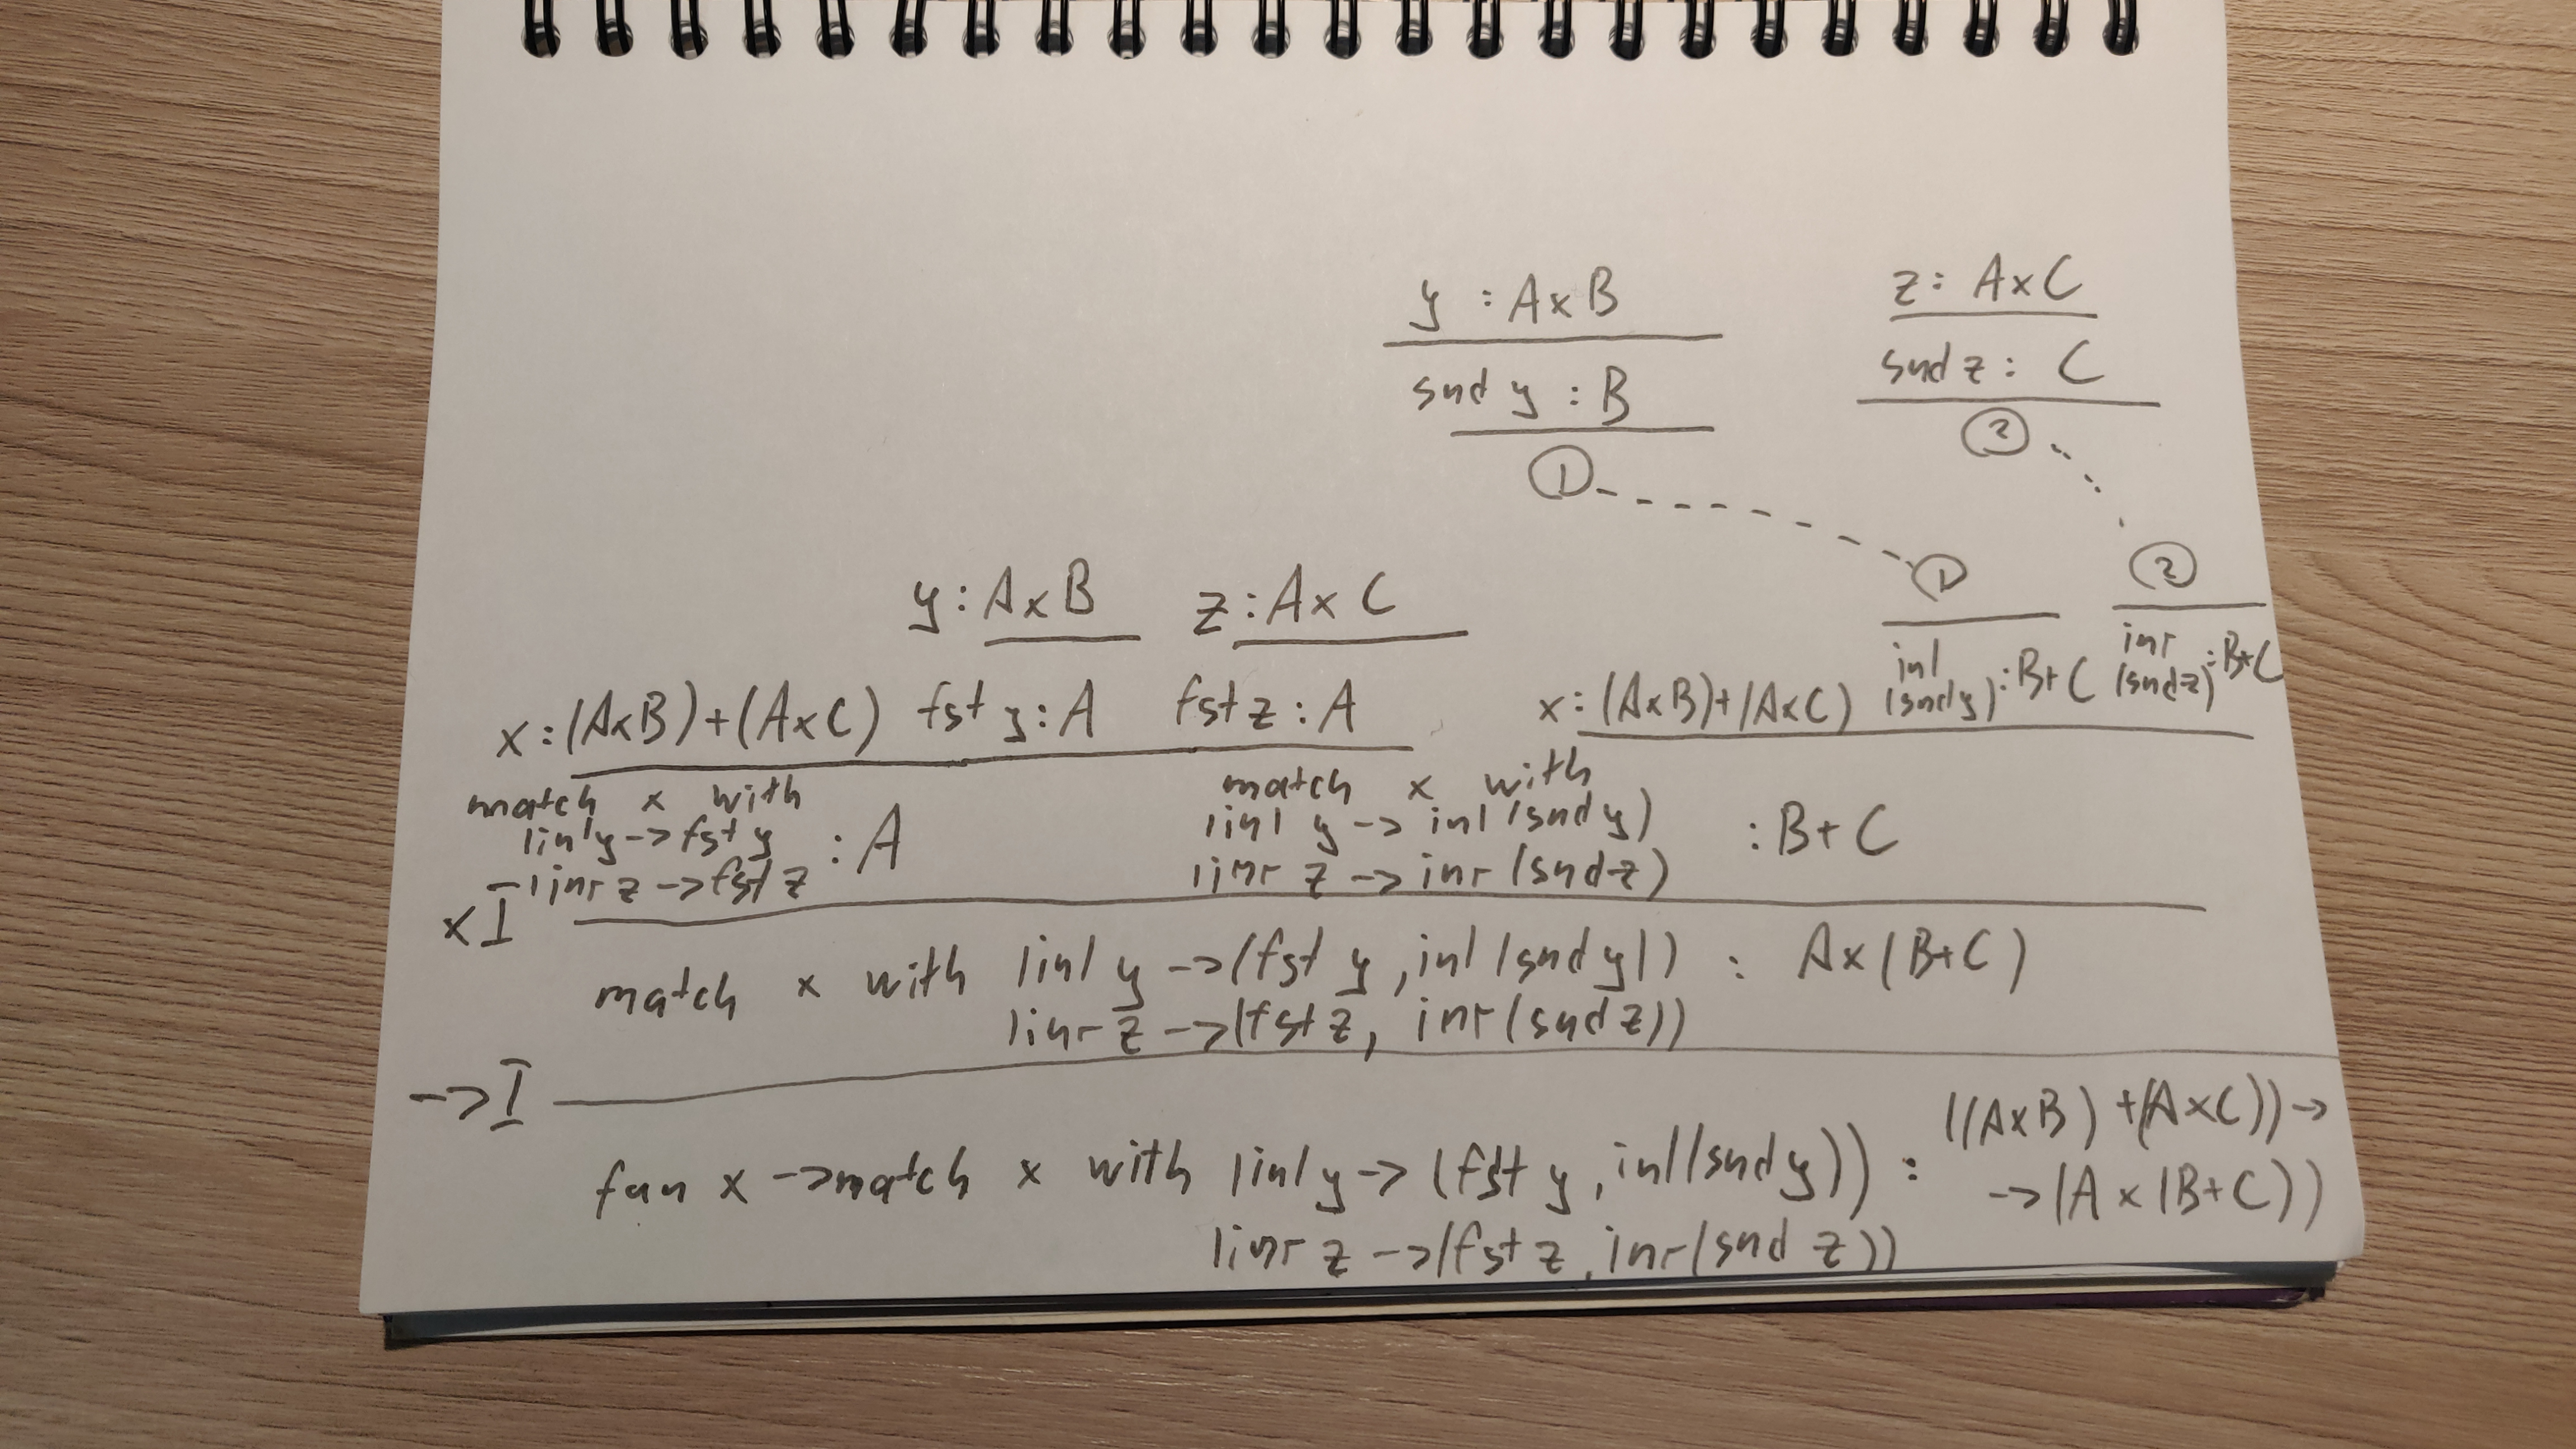 y : A×B
z : A×C
snd y : B
snd z : C
①
②
①
②
y : A×B z : A×C
inl (snd y) : B+C
inr (snd z) : B+C
x : (A×B)+(A×C) fst y : A fst z : A
x : (A×B)+(A×C)
match x with
|inl y -> fst y
|inr z -> fst z
: A
match x with
|inl y -> inl (snd y)
|inr z -> inr (snd z)
: B+C
×I
match x with |inl y -> (fst y, inl (snd y)) : A×(B+C)
|inr z -> (fst z, inr (snd z))
->I
fun x -> match x with |inl y -> (fst y, inl (snd y)) : ((A×B)+(A×C)) ->
-> (A×(B+C))
|inr z -> (fst z, inr (snd z))